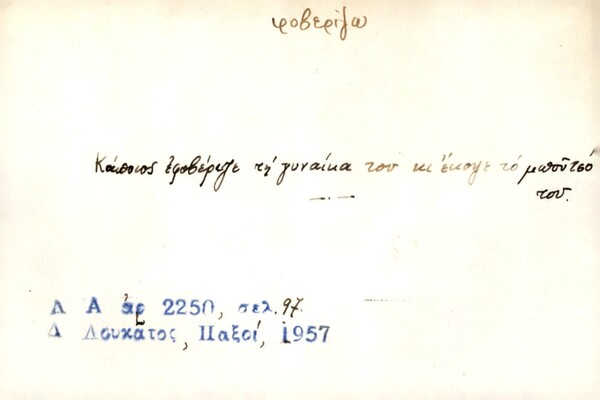 φοβερίζω
Κάποιος ἐφοβέριζε τή γυναίκα του κι ἔκοψε τό μποῦτσό
του.
Λ Α ἀρ 2250, σελ. 97.
Δ Λουκᾶτος, Παξοί, 1957